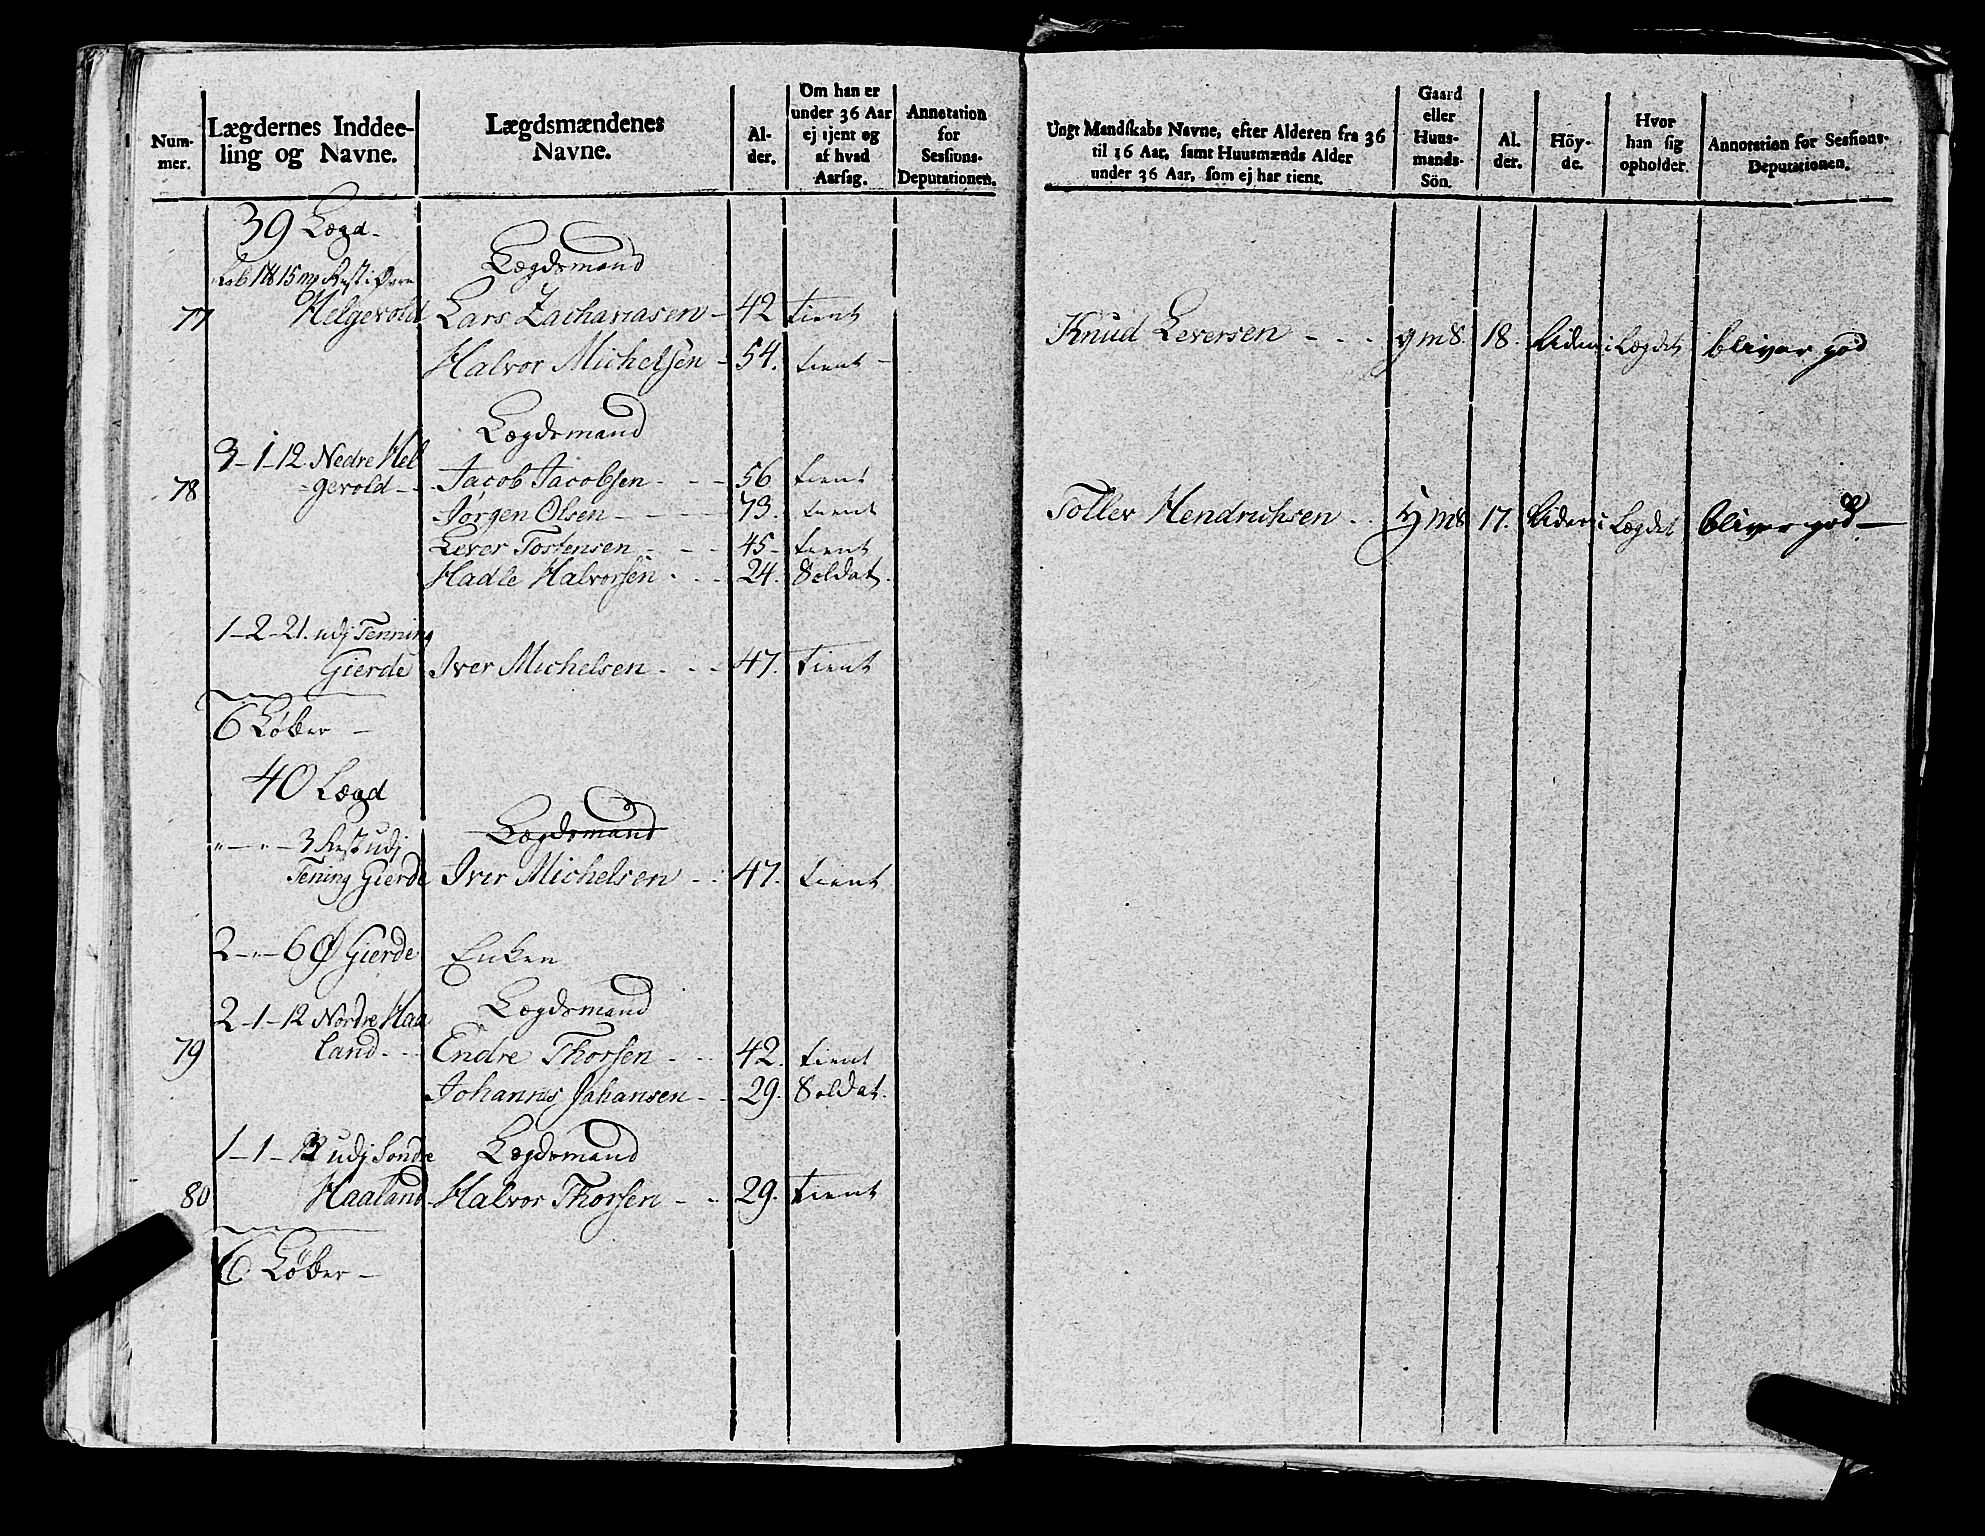 Num-
mer.
Lægdernes Inddee-
ling og Navne.
Lægdsmændenes
Navne.
Al-
der.
Om han er
under 36 Aar
ej tjent og
af hvad
Aarsag.
Annotation
for
Sessions-
Deputationen.
39 Lægd
Lægdsmand
77 Helgevold Lars Zachariasen - 42 tient
Halvor Michelsen - 54. tient -
Lægdsmand
3-1-12 Nedre Hel
78 gevold - Jacob Jacobsen - - - 56 tient
Jørgen Olsen - - - 73. tient
Lever Tostensen - - - 45 - tient
Hadle Halvorsen - - - 24. Soldat.
1-2-21. udj Tenning
Gierde Iver Michelsen - - - 47. tient
6 Løber -
40 Lægd
Lægdsmand
" - " - 3 Rest udj
Tening Gierde Iver Michelsen - - 47. tient
2-"-6 Ø Gierde Enken
Lægdsmand
2-1-12 Nordre Haa
79 land - - Endre Thorsen - - - 42. tient
Johannis Johansen - - 29. Soldat.
1-1-12 udj Søndre Lægdsmand
80 Haaland Halvor Thorsen - - 29. tient
6 Løber -
Ungt Mandskabs Navne, efter Alderen fra 36
til 16 Aar, samt Huusmænds Alder
under 36 Aar, som ej har tient.
Gaard
eller
Huus-
mands-
Sön.
Al.
der.
Höy-
de.
Hvor
han sig
opholder.
Annotation for Sessions-
Deputationen.
Knud Leversen - - . gms. 18. liden i Lægdet bliver god
Toller Hendrichsen . . gms 17. liden i Lægdet bliver god -